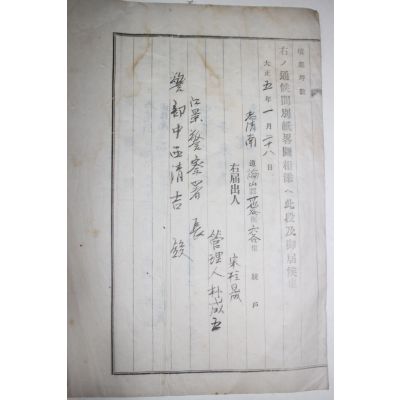 墳墓坪数
右ノ通候間別紙略図相添ヘ此段及御届候也
大正五年一月二十八日
忠清南道論山郡
右届出人
宋柱晟
管理人朴成五
江景警察署長
警部中西清吉殿